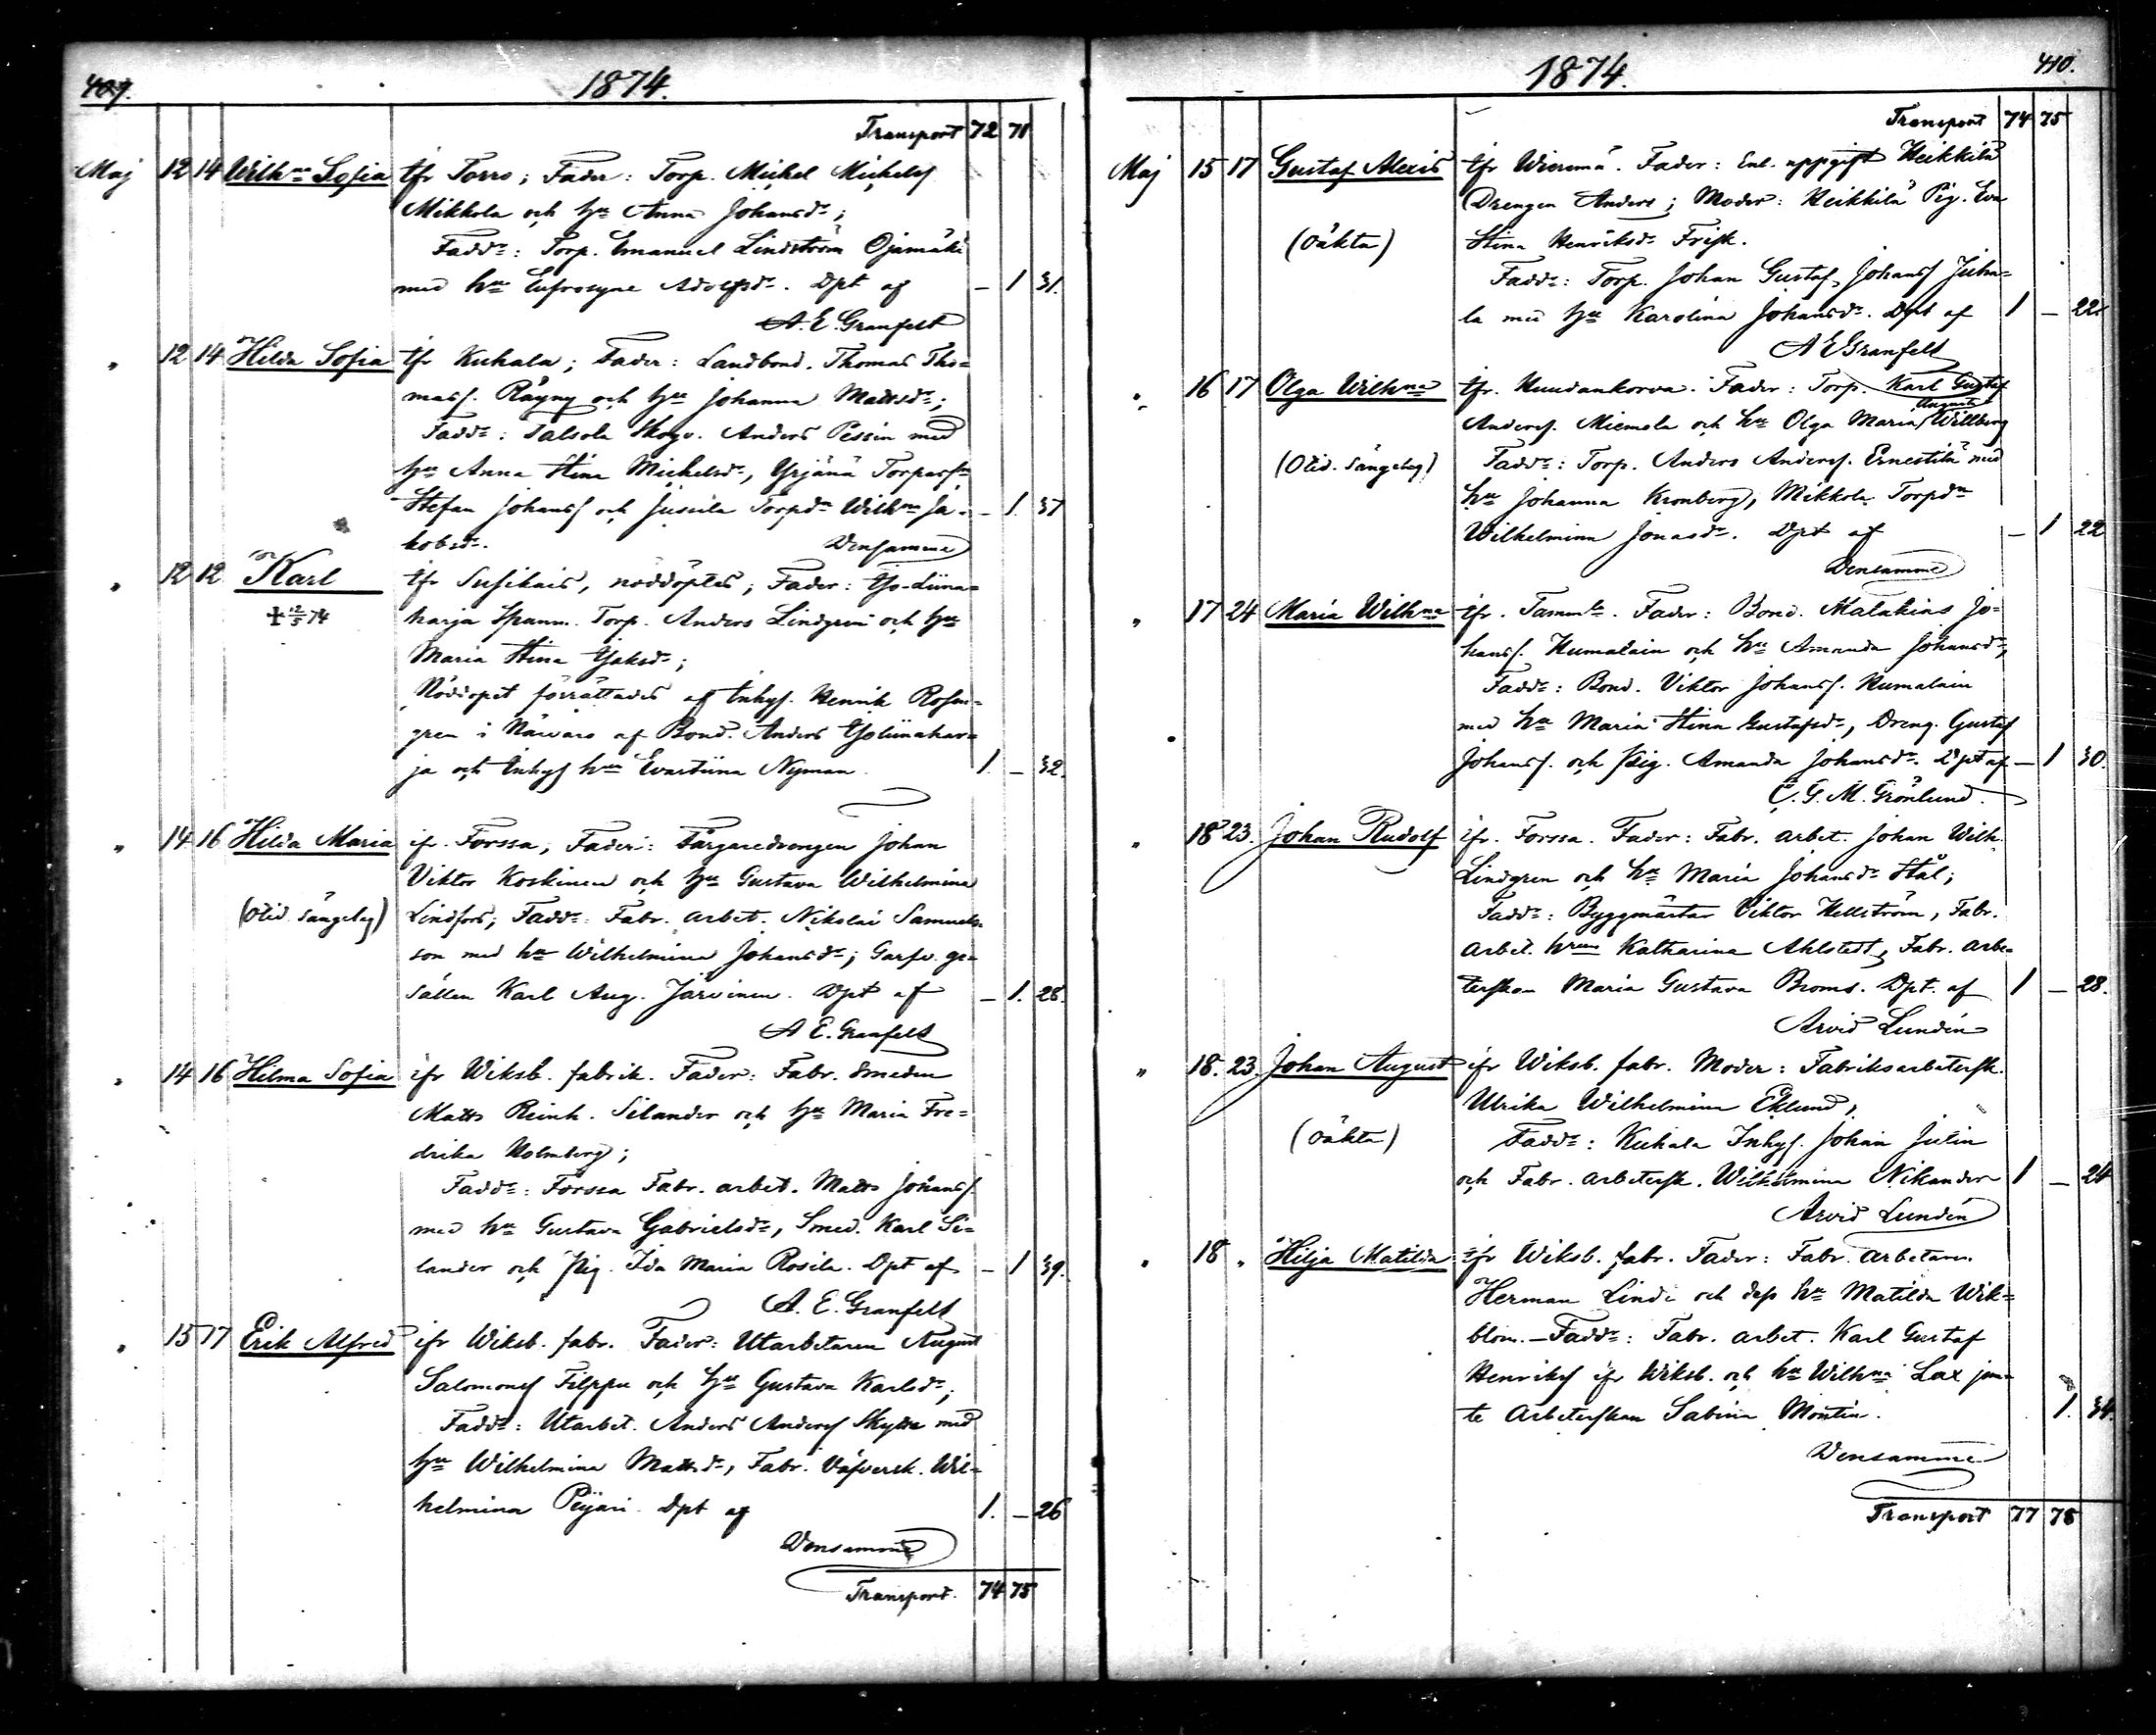 409.
1874.
Transport 72 71
Maj 12 14 Wilhna Sofia ifr Torro; Fader: Torp. Michel Michelsf
Mikkola och hu Anna Johansdr;
Faddr: Torp. Emanuel Lindström Ojamäki
med hu Eufrosyne Adolfsdr. Dpt af – 1 31.
A. E. Granfelt
" 12 14 Hilda Sofia ifr Kuhala; Fader: Landbond. Thomas Tho=
masf. Räyny och hu Johanna Mattsdr;
Faddr: Talsola Skogv. Anders Pessin med
hu Anna Stina Michelsdr, Yrjänä Torparsn
Stefan Johansf och Jussila Torpdr Wilhna Ja= – 1. 37
kobsdr. Densamme
" 12 12 Karl ifr Susikais, nöddöptes; Fader: Yso-Liina=
+ 12/5 74 harja Spanm. Torp. Anders Lindgren och hu
Maria Stina Isaksdr;
Nöddopet förrättades af Inhys. Henrik Rosen=
gren i närvaro af Bond. Anders Isoliinahar=
ja och Inhys hu Evastiina Nyman. 1. – 32.
" 14 16 Hilda Maria ifr. Forssa; Fader: Färgaredrengen Johan
Viktor Koskinen och hu Gustava Wilhelmina
(Otid. Sängelag) Lindfors; Faddr: Fabr. arbet. Nikolai Samuels=
son med hu Wilhelmina Johansdr; Garfv. ge=
sällen Karl Aug. Järvinen. Dpt af – 1. 28.
A E. Granfelt
" 14 16 Hilma Sofia ifr Wiksb. fabrik. Fader: Fabr. Smeden
Matts Reinh. Silander och hu Maria Fre=
drika Holmberg;
Faddr: Forssa Fabr. arbet. Matts Johansf.
med hu Gustava Gabrielsdr, Smed. Karl Si=
lander och Pig. Ida Maria Rosila. Dpt af – 1 39.
A. E. Granfelt
" 15 17 Erik Alfred ifr Wiksb. fabr. Fader: Utarbetaren August
Salomonsf Filppu och hu Gustava Karlsdr;
Faddr: Utarbet. Anders Andersf Skyttä med
hu Wilhelmina Mattsdr, Fabr. Väfversk. Wil=
helmina Peijari. Dpt af 1. – 26
Densamme
Transport. 74 75
410.
1874.
Transport 74 75
Maj 15 17 Gustaf Alexis ifr Wieremä. Fader: Enl. uppgift Heikkilä
Drengen Anders; Moder: Heikkilä Pig. Eva
(Oäkta) Stina Henriksdr Frisk.
Faddr: Torp. Johan Gustaf Johansf Juha=
la med hu Karolina Johansdr. Dpt af 1 – 22
A E Granfelt
" 16 17 Olga Wilhna ifr. Huudankorva. Fader: Torp. Karl Gustaf
Augusta
Andersf. Miemola och hu Olga Maria Willberg
(Otid. Sängelag) Faddr: Torp. Anders Andersf. Ernestilä med
hu Johanna Kronberg, Mikkola Torpdn
Wilhelmina Jonasdr. Dpt af – 1 22
Densamme
" 17 24 Maria Wilhna ifr. Tamm. Fader: Bond. Malakias Jo=
hansf. Humalain och hu Amanda Johansdr;
Faddr: Bond. Viktor Johansf. Humalain
med hu Maria Stina Gustafsdr, Dreng. Gustaf
Johansf. och Pig. Amanda Johansdr. Dpt af – 1 30.
C. G. M. Grönlund.
" 18 23. Johan Rudolf ifr. Forssa. Fader: Fabr. arbet. Johan Wilh.
Lindgren och hu Maria Johansdr Stål;
Faddr: Byggmästar Viktor Hellström, Fabr.
arbet. hrun Katharina Ahlstedt, Fabr. arbe=
terskan Maria Gustava Broms. Dpt. af 1 – 28.
Arvid Lundén
" 18. 23. Johan August ifr Wiksb. fabr. Moder: Fabriksarbetersk.
Ulrika Wilhelmina Eklund,
(Oäkta) Faddr: Kuhala Inhys. Johan Julin
och Fabr. arbetersk. Wilhelmina Nikander 1 – 24
Arvid Lundén
" 18 " Hilja Matilda ifr Wiksb. fabr. Fader: Fabr. arbetaren
Herman Linde och dess hu Matilda Wik=
blom. – Faddr: Fabr. arbet. Karl Gustaf
Henriksf ifr Wiksb. och hu Wilhna Lax jem=
te Arbeterskan Sabina Montin. 1. 34.
Densamme
Transport 77 78